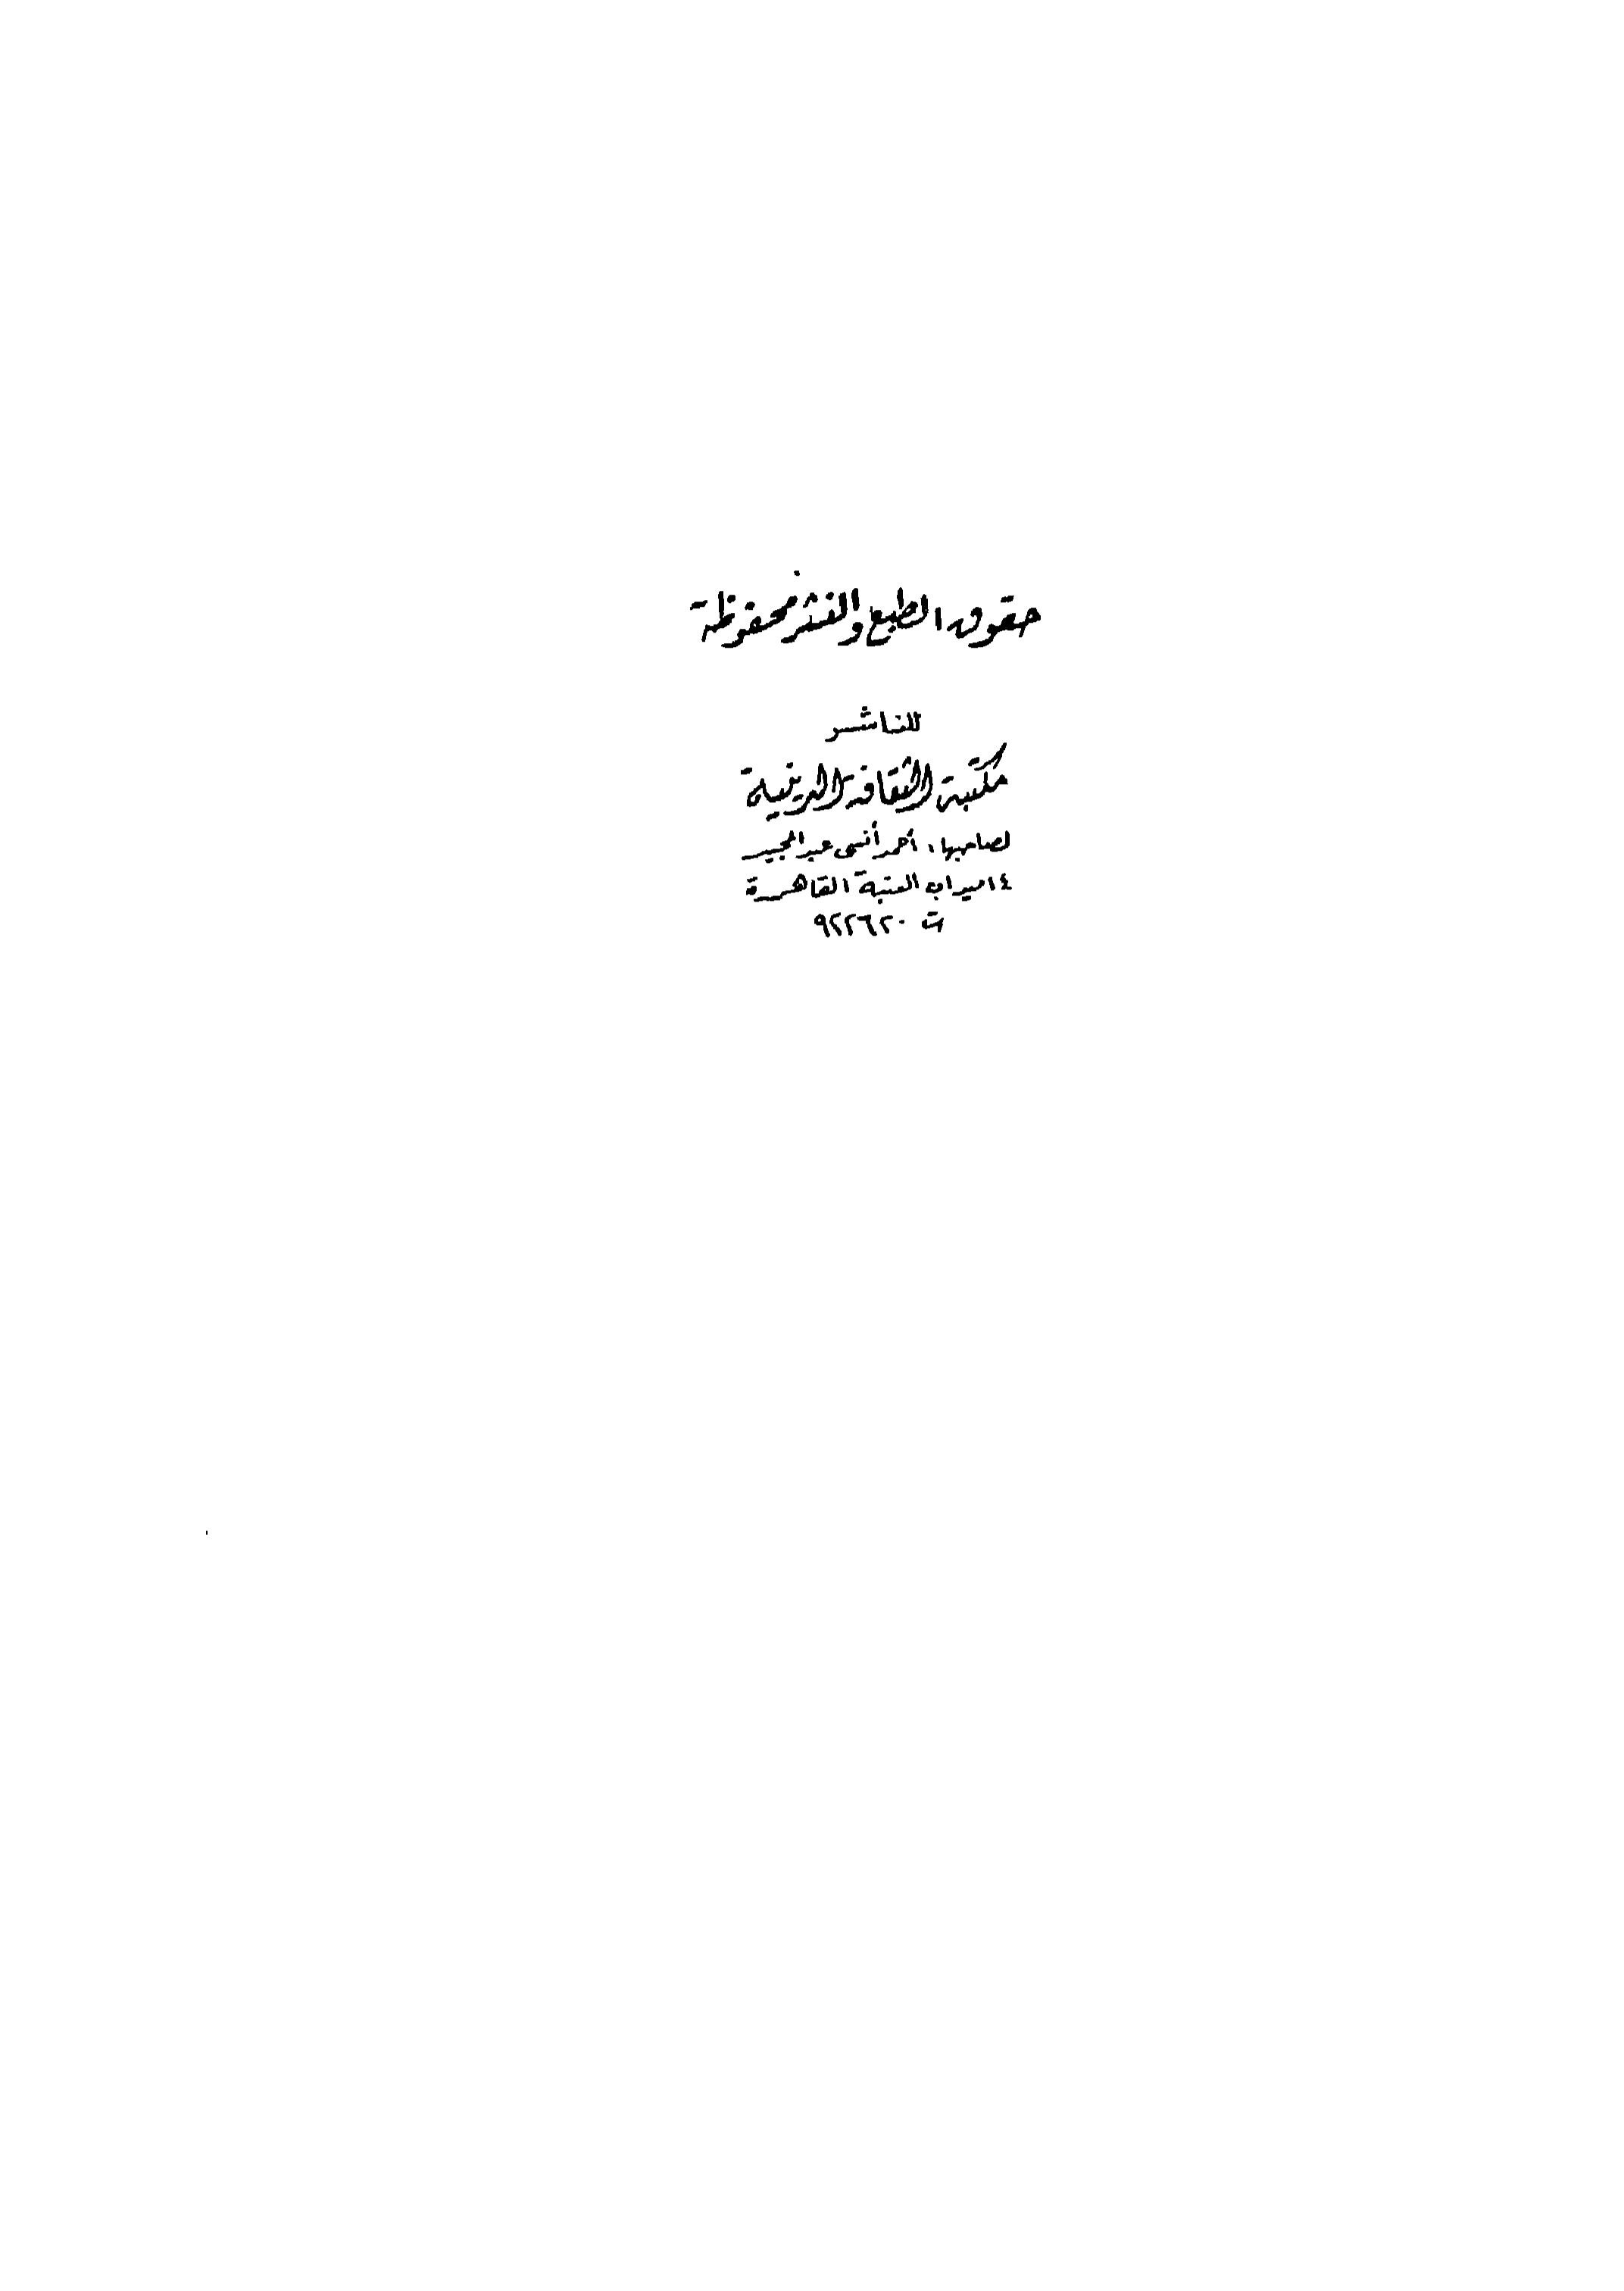 حقوق الطبع والنشر محفوظة
للناشر
مكتبة الثقافة الدينية
لصاحبها: أحمد أنسى عبد المجيد
١٤ ميدان العتبة القاهرة
ت ٩٢٢٦٢٠